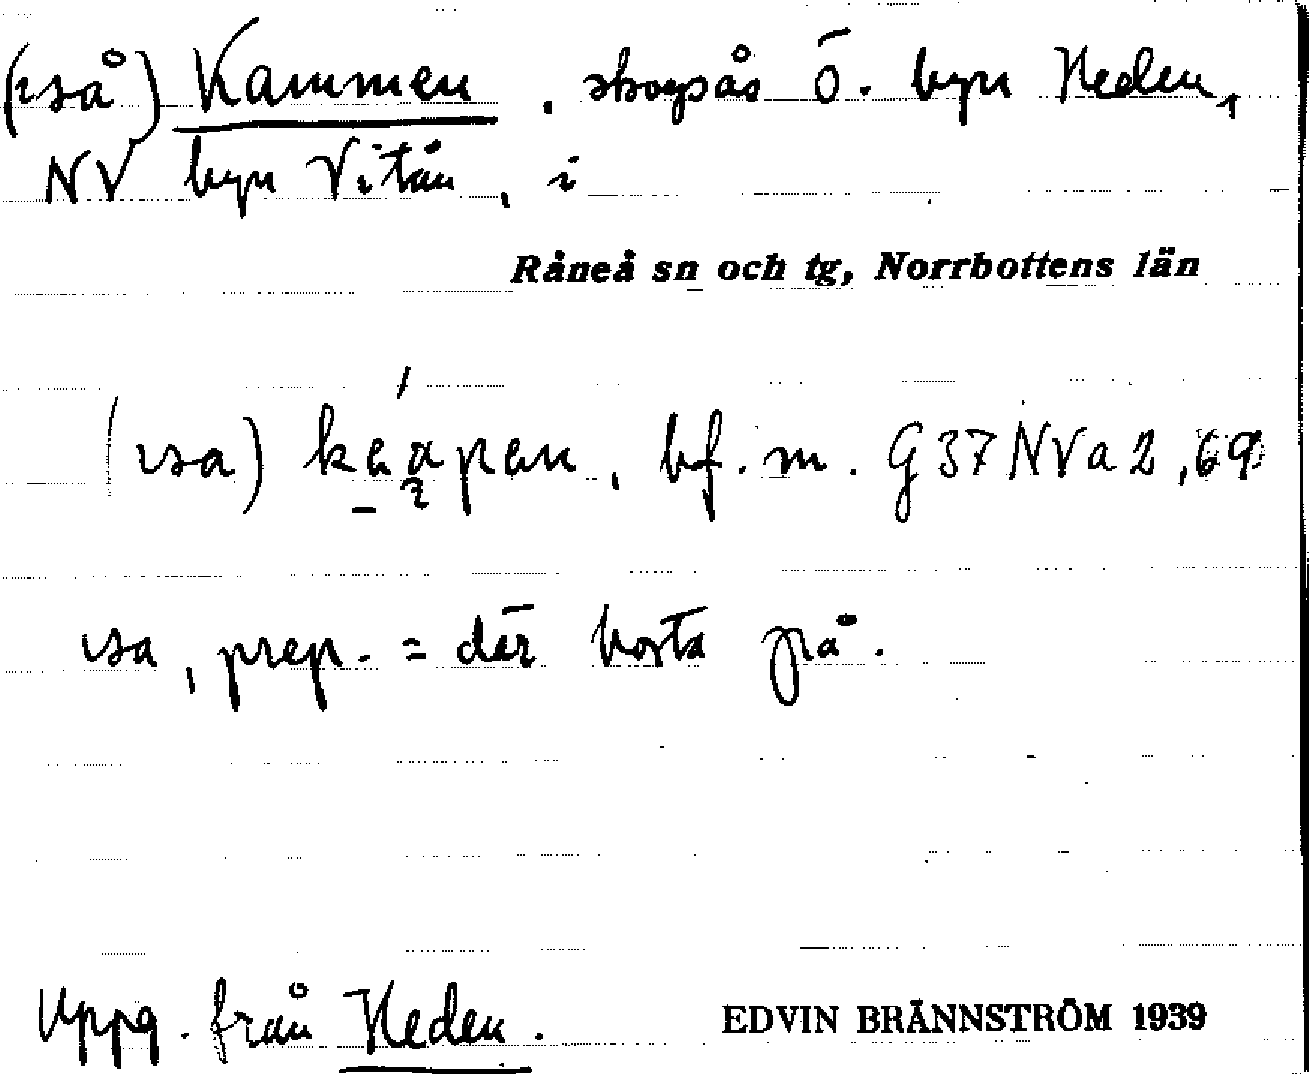 (uså) Kammen, skogsås Ö. byn Heden,
NV byn Vitån, i
Råneå sn och tg, Norrbottens län
bf. m. G 37 NV a 2, 69
usa, prep. = där borta på.
Uppg. från Heden.
EDVIN BRÄNNSTRÖM 1939